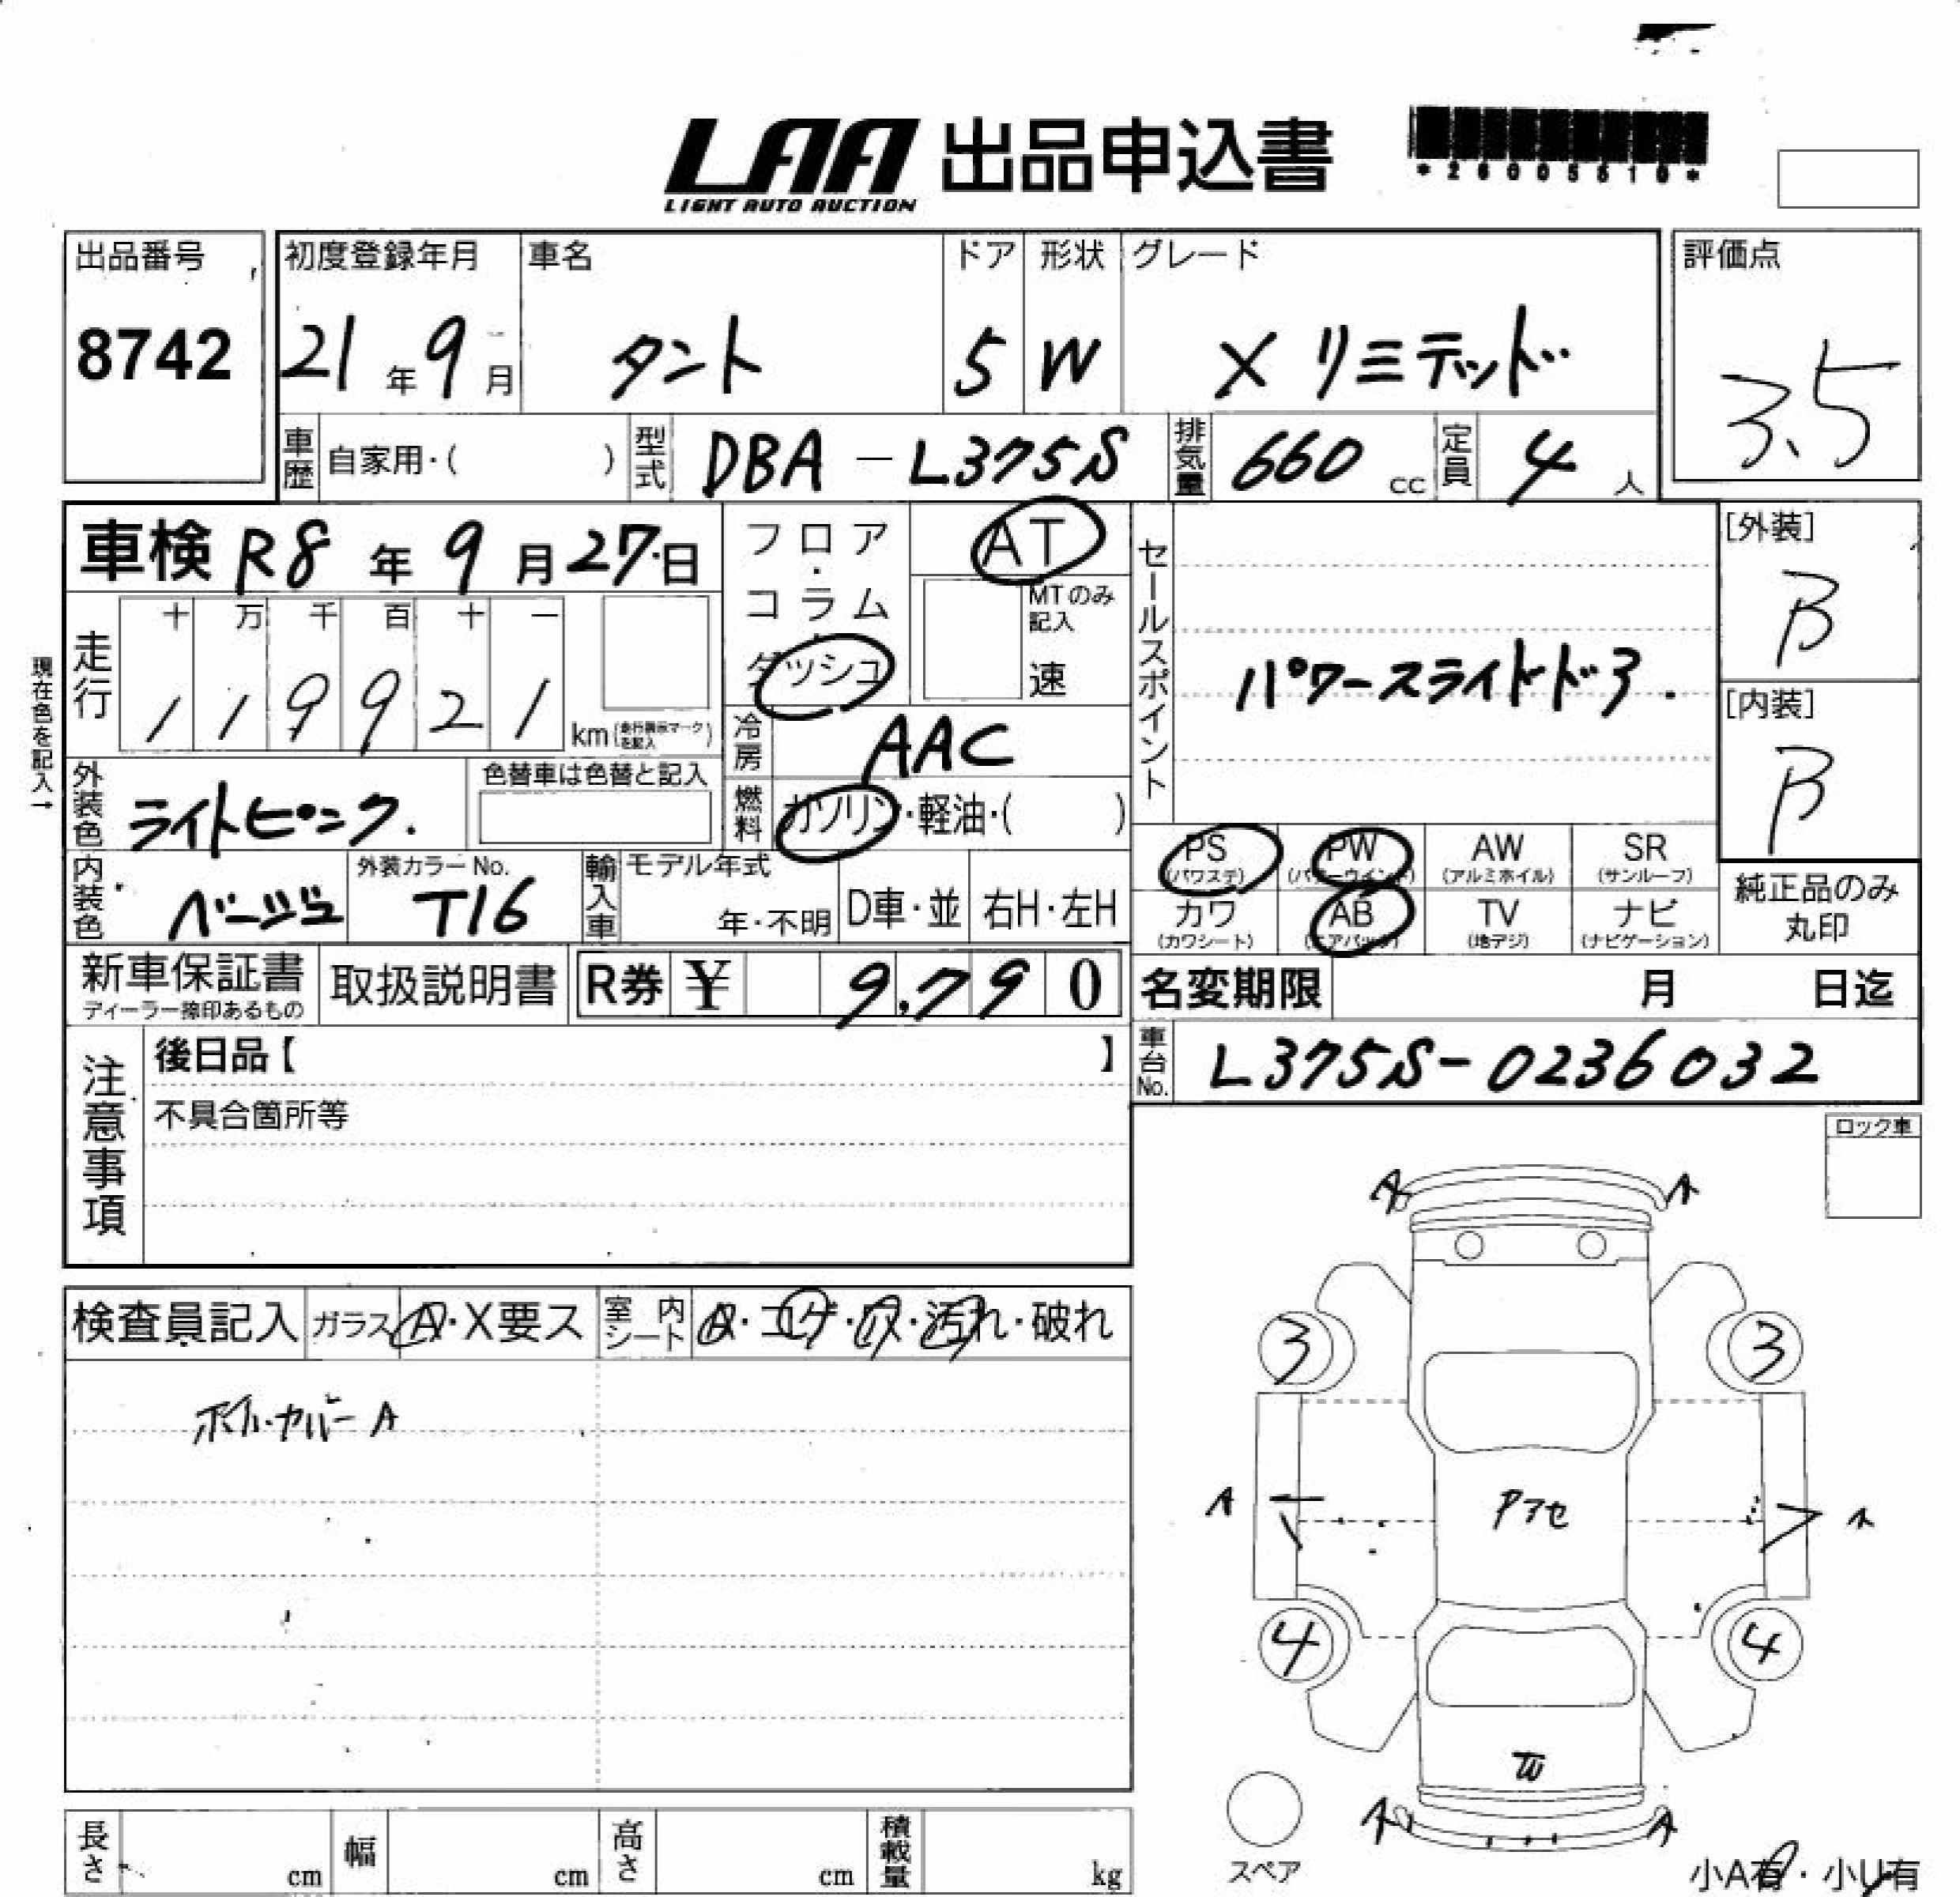 LAA 出品申込書
LIGHT AUTO AUCTION
出品番号
8742
初度登録年月
21年9月
車名
タント
ドア
5
形状
W
グレード
X リミテッド
評価点
3.5
車歴 自家用・( )
型式 DBA-L375S
排気量 660 cc
定員 4 人
車検 R8年9月27日
現在色を記入→
走行
十 万 千 百 十 一
1 1 9 9 2 1 km
外装色 ライトピンク.
色替車は色替と記入
内装色 ベージュ
外装カラーNo.
T16
フロア・コラム・ダッシュ
AT
MTのみ記入
速
冷房 AAC
燃料 ガソリン・軽油・( )
輸入車
モデル年式
年・不明
D車・並
右H・左H
セールスポイント
パワースライドドア.
[外装]
B
[内装]
B
PS (パワステ)
PW (パワーウインド)
AW (アルミホイル)
SR (サンルーフ)
カワ (カワシート)
AB (エアバック)
TV (地デジ)
ナビ (ナビゲーション)
純正品のみ丸印
新車保証書
ディーラー捺印あるもの
取扱説明書
R券 ¥ 9,790
名変期限 月 日迄
車台No. L375S-0236032
注意事項
後日品【 】
不具合箇所等
ロック車
検査員記入
ガラス A・X要ス
室内シート A・コゲ・穴・汚れ・破れ
ホイルカバーA
A A
3 3
A A
Pアセ
4 4
W
A A
スペア
小A有・小U有
長さ cm
幅 cm
高さ cm
積載量 kg